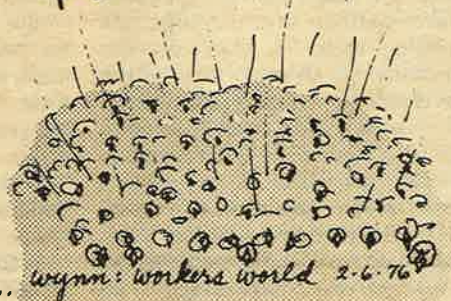 wynn: workers world 2-6-76